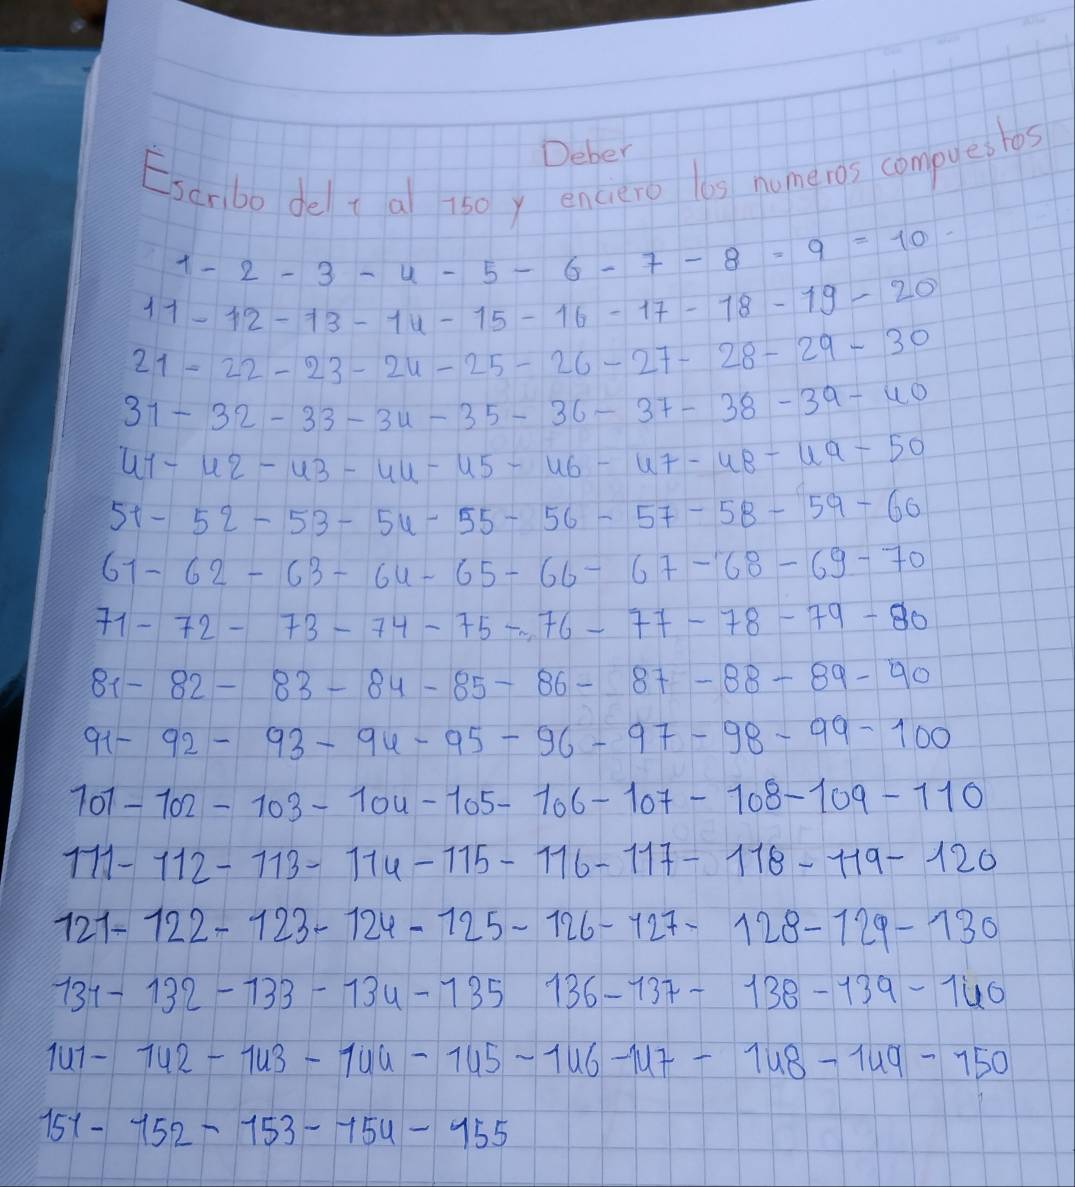 Deber
Escribo del 1 al 150 y enciero los numeros compuestos
1 - 2 - 3 - 4 - 5 - 6 - 7 - 8 - 9 = 10 -
11 - 12 - 13 - 14 - 15 - 16 - 17 - 18 - 19 - 20
21 - 22 - 23 - 24 - 25 - 26 - 27 - 28 - 29 - 30
31 - 32 - 33 - 34 - 35 - 36 - 37 - 38 - 39 - 40
41 - 42 - 43 - 44 - 45 - 46 - 47 - 48 - 49 - 50
51 - 52 - 53 - 54 - 55 - 56 - 57 - 58 - 59 - 60
61 - 62 - 63 - 64 - 65 - 66 - 67 - 68 - 69 - 70
71 - 72 - 73 - 74 - 75 - 76 - 77 - 78 - 79 - 80
81 - 82 - 83 - 84 - 85 - 86 - 87 - 88 - 89 - 90
91 - 92 - 93 - 94 - 95 - 96 - 97 - 98 - 99 - 100
101 - 102 - 103 - 104 - 105 - 106 - 107 - 108 - 109 - 110
111 - 112 - 113 - 114 - 115 - 116 - 117 - 118 - 119 - 120
121 - 122 - 123 - 124 - 125 - 126 - 127 - 128 - 129 - 130
131 - 132 - 133 - 134 - 135 136 - 137 - 138 - 139 - 140
141 - 142 - 143 - 144 - 145 - 146 - 147 - 148 - 149 - 150
151 - 152 - 153 - 154 - 155